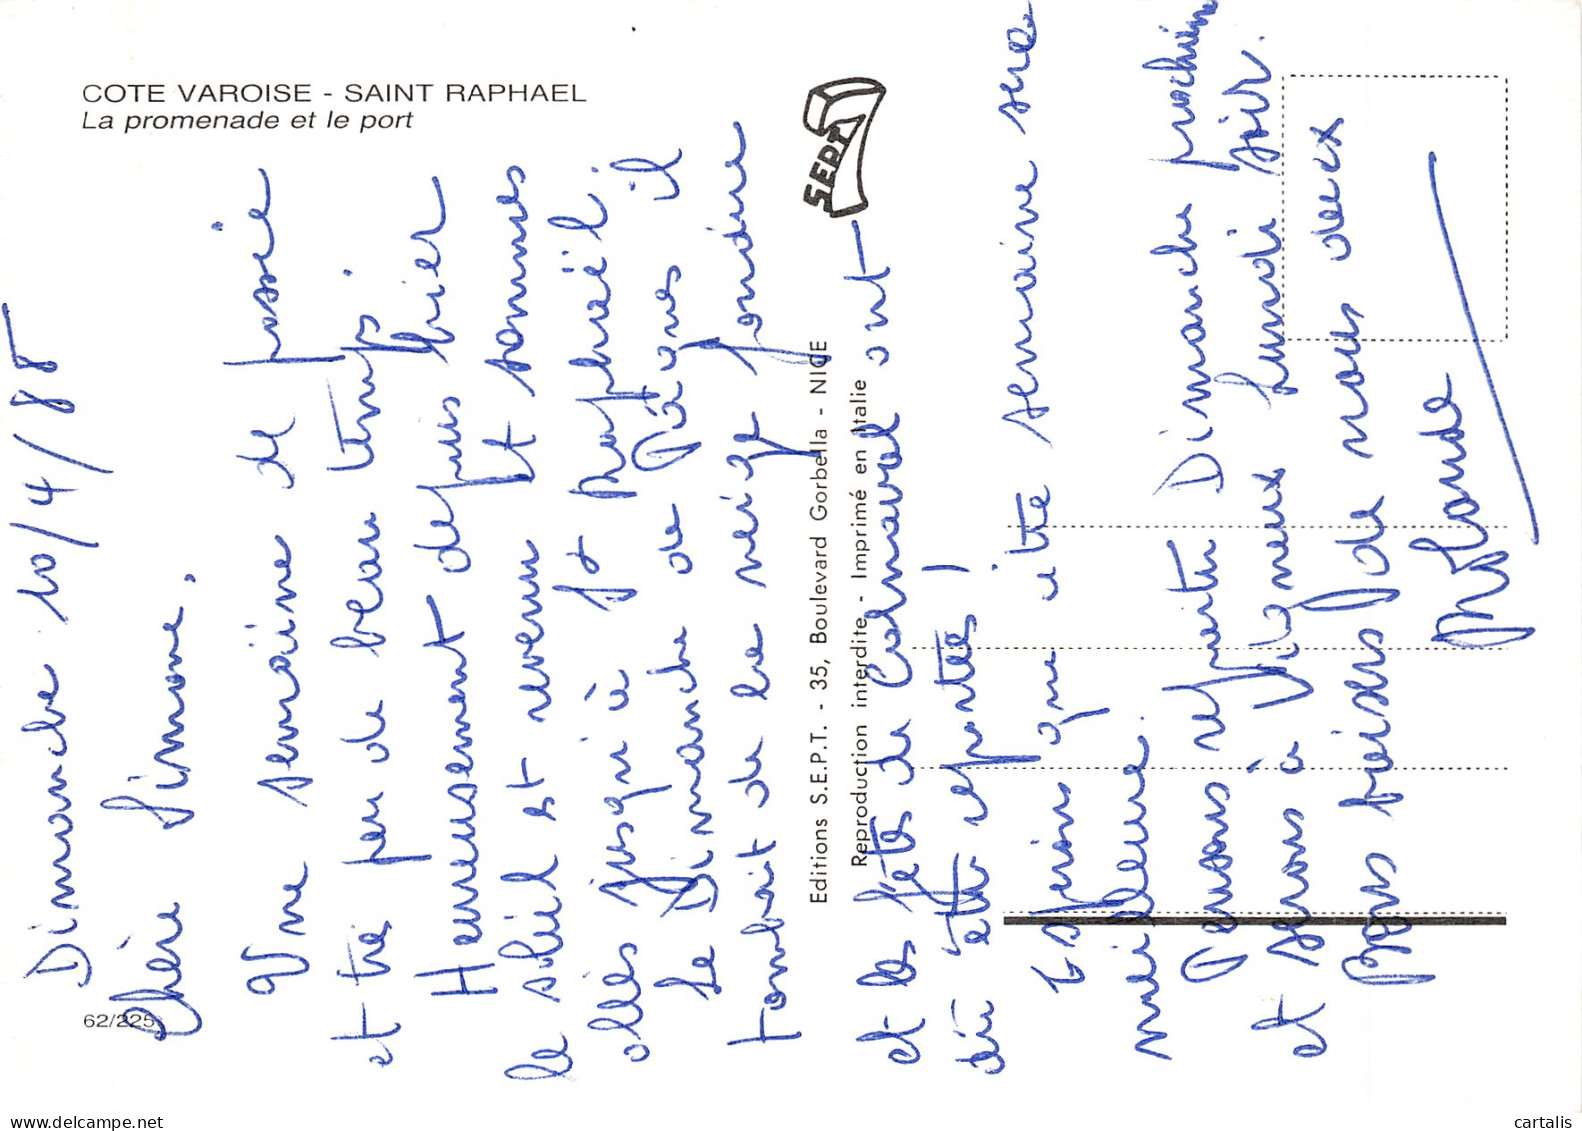 COTE VAROISE - SAINT RAPHAEL
La promenade et le port
SEPT
Editions S.E.P.T. - 35, Boulevard Gorbella - NICE
Reproduction interdite - Imprimé en Italie
62/225
Dimanche 10/4/88
Chère Simone,
Une semaine de passée
et très peu de beau temps
Heureusement depuis hier
le soleil est revenu et sommes
allés jusqu'à St Raphaël.
Le Dimanche de Pâques il
tombait de la neige fondue
et les fêtes du Carnaval ont
dû être reportées!
Espérons que cette semaine sera
meilleure.
Pensons repartir Dimanche prochain
et serons à Vigneux Lundi soir.
Bons baisers de nous deux
cartalis
www.delcampe.net